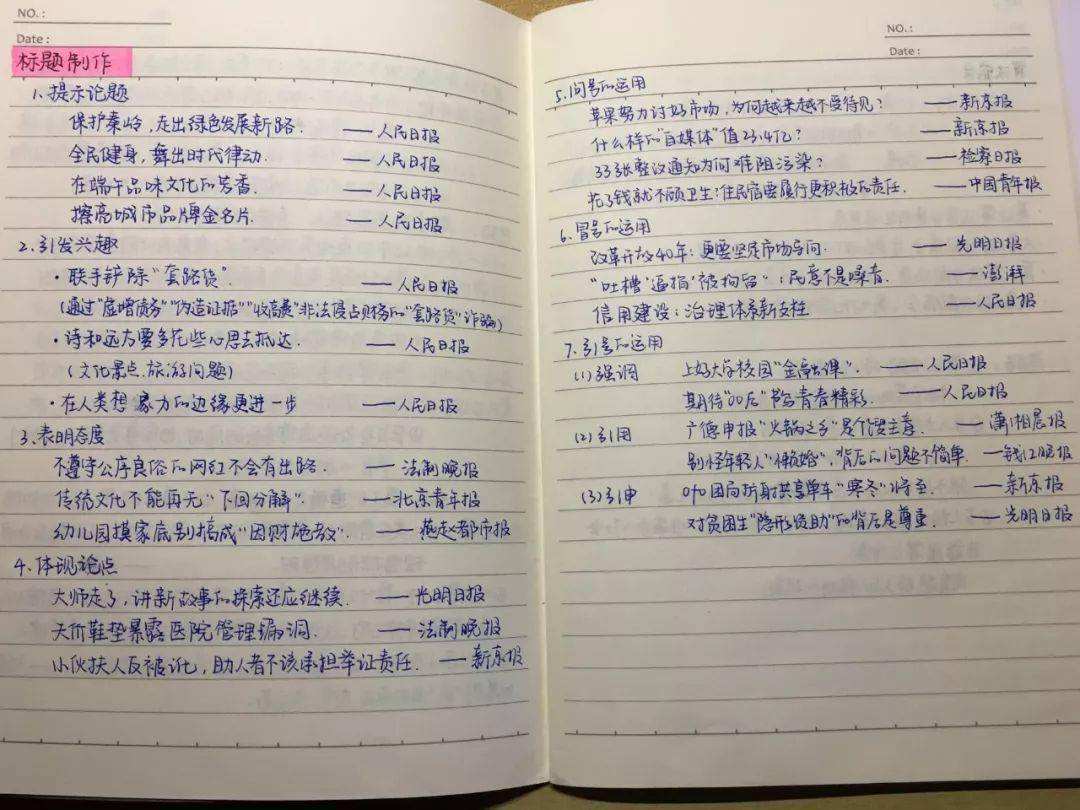 NO.:
Date:
标题制作
1、提示论题
保护秦岭,走出绿色发展新路. ——人民日报
全民健身,舞出时代律动. ——人民日报
在端午品味文化的芳香. ——人民日报
擦亮城市品牌金名片. ——人民日报
2.引发兴趣
·联手铲除“套路贷”. ——人民日报
(通过“虚增债务”“伪造证据”“收高费”非法侵占财务的“套路贷”诈骗)
·诗和远方要多花些心思去抵达. ——人民日报
(文化景点.旅游问题)
·在人类想象力的边缘更进一步 ——人民日报
3.表明态度
不遵守公序良俗的网红不会有出路. ——法制晚报
传统文化不能再无“下回分解”. ——北京青年报
幼儿园摸家底别搞成“因财施教”. ——燕赵都市报
4.体现论点
大师走了,讲新故事的探索还应继续. ——光明日报
天价鞋垫暴露医院管理漏洞. ——法制晚报
小伙扶人反被讹,助人者不该承担举证责任. ——新京报
NO.:
Date:
5.问号的运用
苹果努力讨好市场,为何越来越不受待见? ——新京报
什么样的“自媒体”值23.4亿? ——新京报
33张整改通知为何难阻污染? ——检察日报
花了钱就不顾卫生?住民宿要履行更积极的责任. ——中国青年报
6.冒号的运用
改革开放40年:更要坚定市场导向. ——光明日报
“吐槽‘逼捐’被拘留”:民意不是噪音. ——澎湃
信用建设:治理体系新支柱 ——人民日报
7.引号的运用
(1)强调 上好大学校园“金融课”. ——人民日报
期待“00后”书写青春精彩. ——人民日报
(2)引用 广德申报“火锅之乡”是个馊主意. ——潇湘晨报
别怪年轻人“懒婚”,背后的问题不简单. —钱江晚报
(3)引申 ofo困局折射共享单车“寒冬”将至. ——新京报
对贫困生“隐形资助”的背后是尊重. ——光明日报